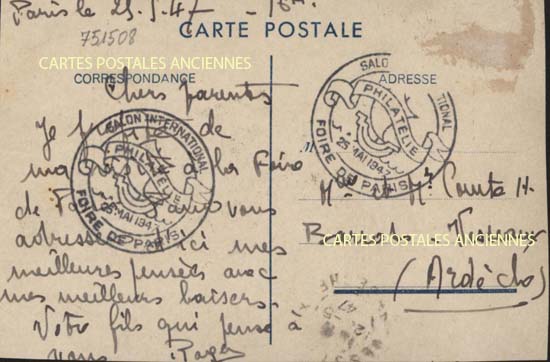 Paris le 25.5.47 - 18h.
751508
CARTE POSTALE
CARTES POSTALES ANCIENNES
CORRESPONDANCE
ADRESSE
Chers parents
Je de
ma à la Foire
de vous
adresser ici mes
meilleures pensées avec
mes meilleurs baisers.
Votre fils qui pense à
vous Roger
SALON INTERNATIONAL
PHILATELIE
25 MAI 1947
FOIRE DE PARIS
SALO TIONAL
PHILATELIE
25 MAI 1947
FOIRE DE PARIS
M
Mr et Mme H.
CARTES POSTALES ANCIENNES
(Ardèche)